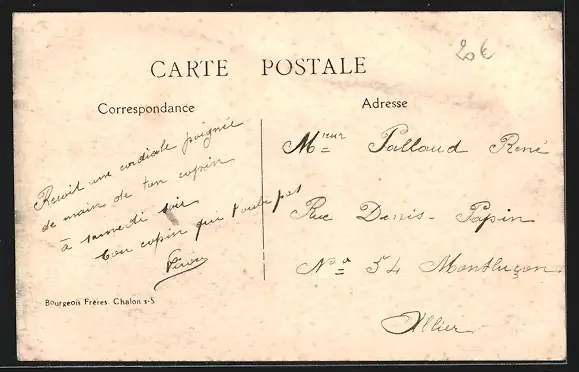 20€
CARTE POSTALE
Correspondance
Adresse
Reçoit une cordiale poignée
de main de ton copin
à samedi soir
ton copin qui t'oubli pas
Mrieur Pallaud René
Rue Denis-Papin
No 54 Montluçon
Allier
Bourgeois Frères. Chalon s-S.